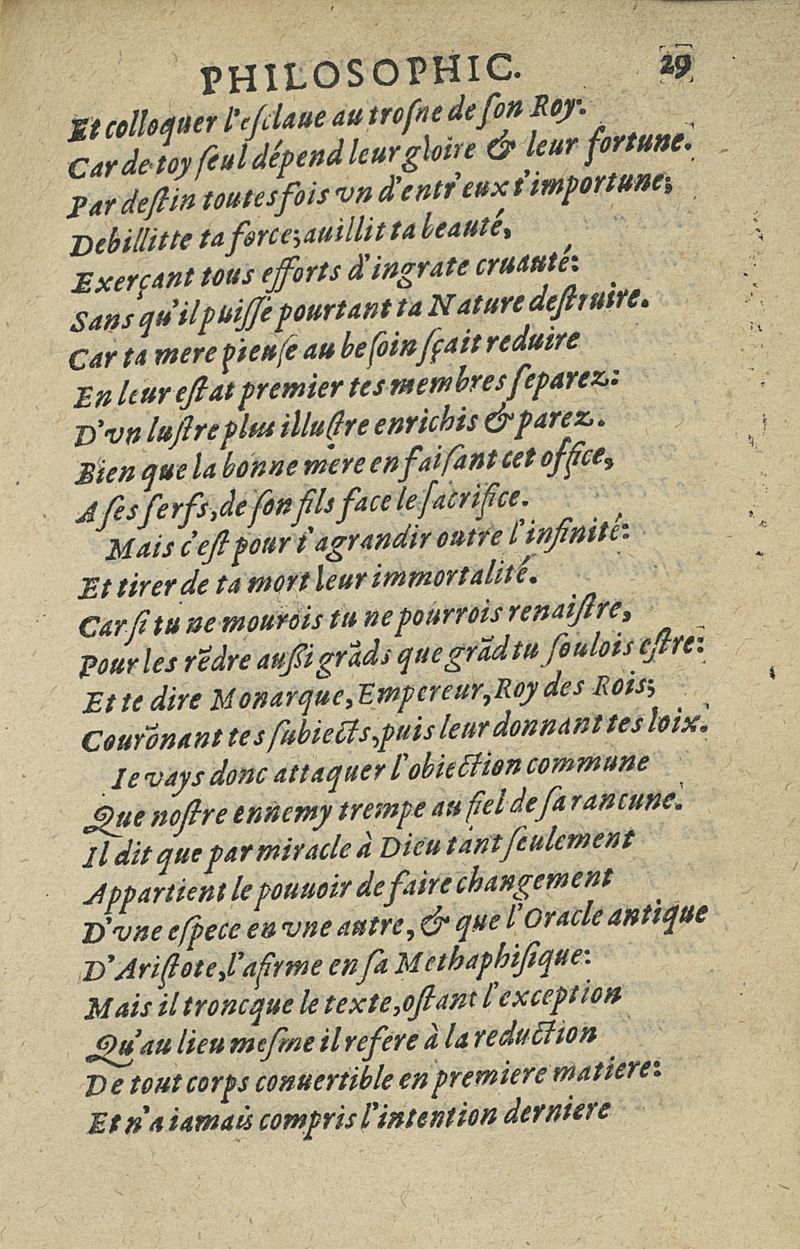 PHILOSOPHIC. 29
Et colloquer l'eſclaue au troſne de ſon Roy.
Car de toy ſeul dépend leur gloire & leur fortune.
Par deſtin toutesfois vn d'entr'eux t'importune;
Debillitte ta force; auillit ta beauté,
Exerçant tous efforts d'ingrate cruauté:
Sans qu'il puiſſe pourtant ta Nature deſtruire.
Car ta mere pieuſe au beſoin ſçait reduire
En leur eſtat premier tes membres ſeparez:
D'vn luſtre plus illuſtre enrichis & parez.
Bien que la bonne mere en faiſant cet office,
A ſes ſerfs, de ſon fils face le ſacrifice.
Mais c'eſt pour t'agrandir outre l'infinité:
Et tirer de ta mort leur immortalité.
Car ſi tu ne mourois tu ne pourrois renaiſtre,
Pour les rẽdre auſſi grãds que grãd tu ſoulois eſtre:
Et te dire Monarque, Empereur, Roy des Rois;
Courõnant tes ſubiects, puis leur donnant tes loix.
Ie vays donc attaquer l'obiection commune
Que noſtre ennemy trempe au fiel de ſa rancune.
Il dit que par miracle à Dieu tant ſeulement
Appartient le pouuoir de faire changement
D'vne eſpece en vne autre, & que l'Oracle antique
D'Ariſtote, l'afirme en ſa Methaphiſique:
Mais il troncque le texte, oſtant l'exception
Qu'au lieu meſme il refere à la reduction
De tout corps conuertible en premiere matiere:
Et n'a iamais compris l'intention derniere